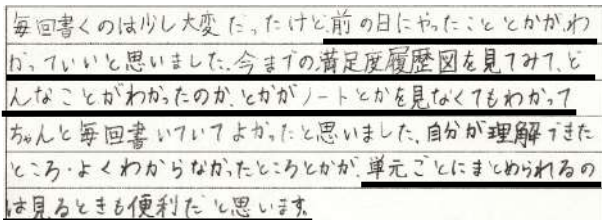 毎回書くのは少し大変だったけど、前の日にやったこととかが、わ
かっていいと思いました。今までの満足度履歴図を見てみて、ど
んなことがわかったのか、とかがノートとかを見なくてもわかって
ちゃんと毎回書いていてよかったと思いました、自分が理解できた
ところ・よくわからなかったところとかが、単元ごとにまとめられるの
は見るときも便利だと思います。